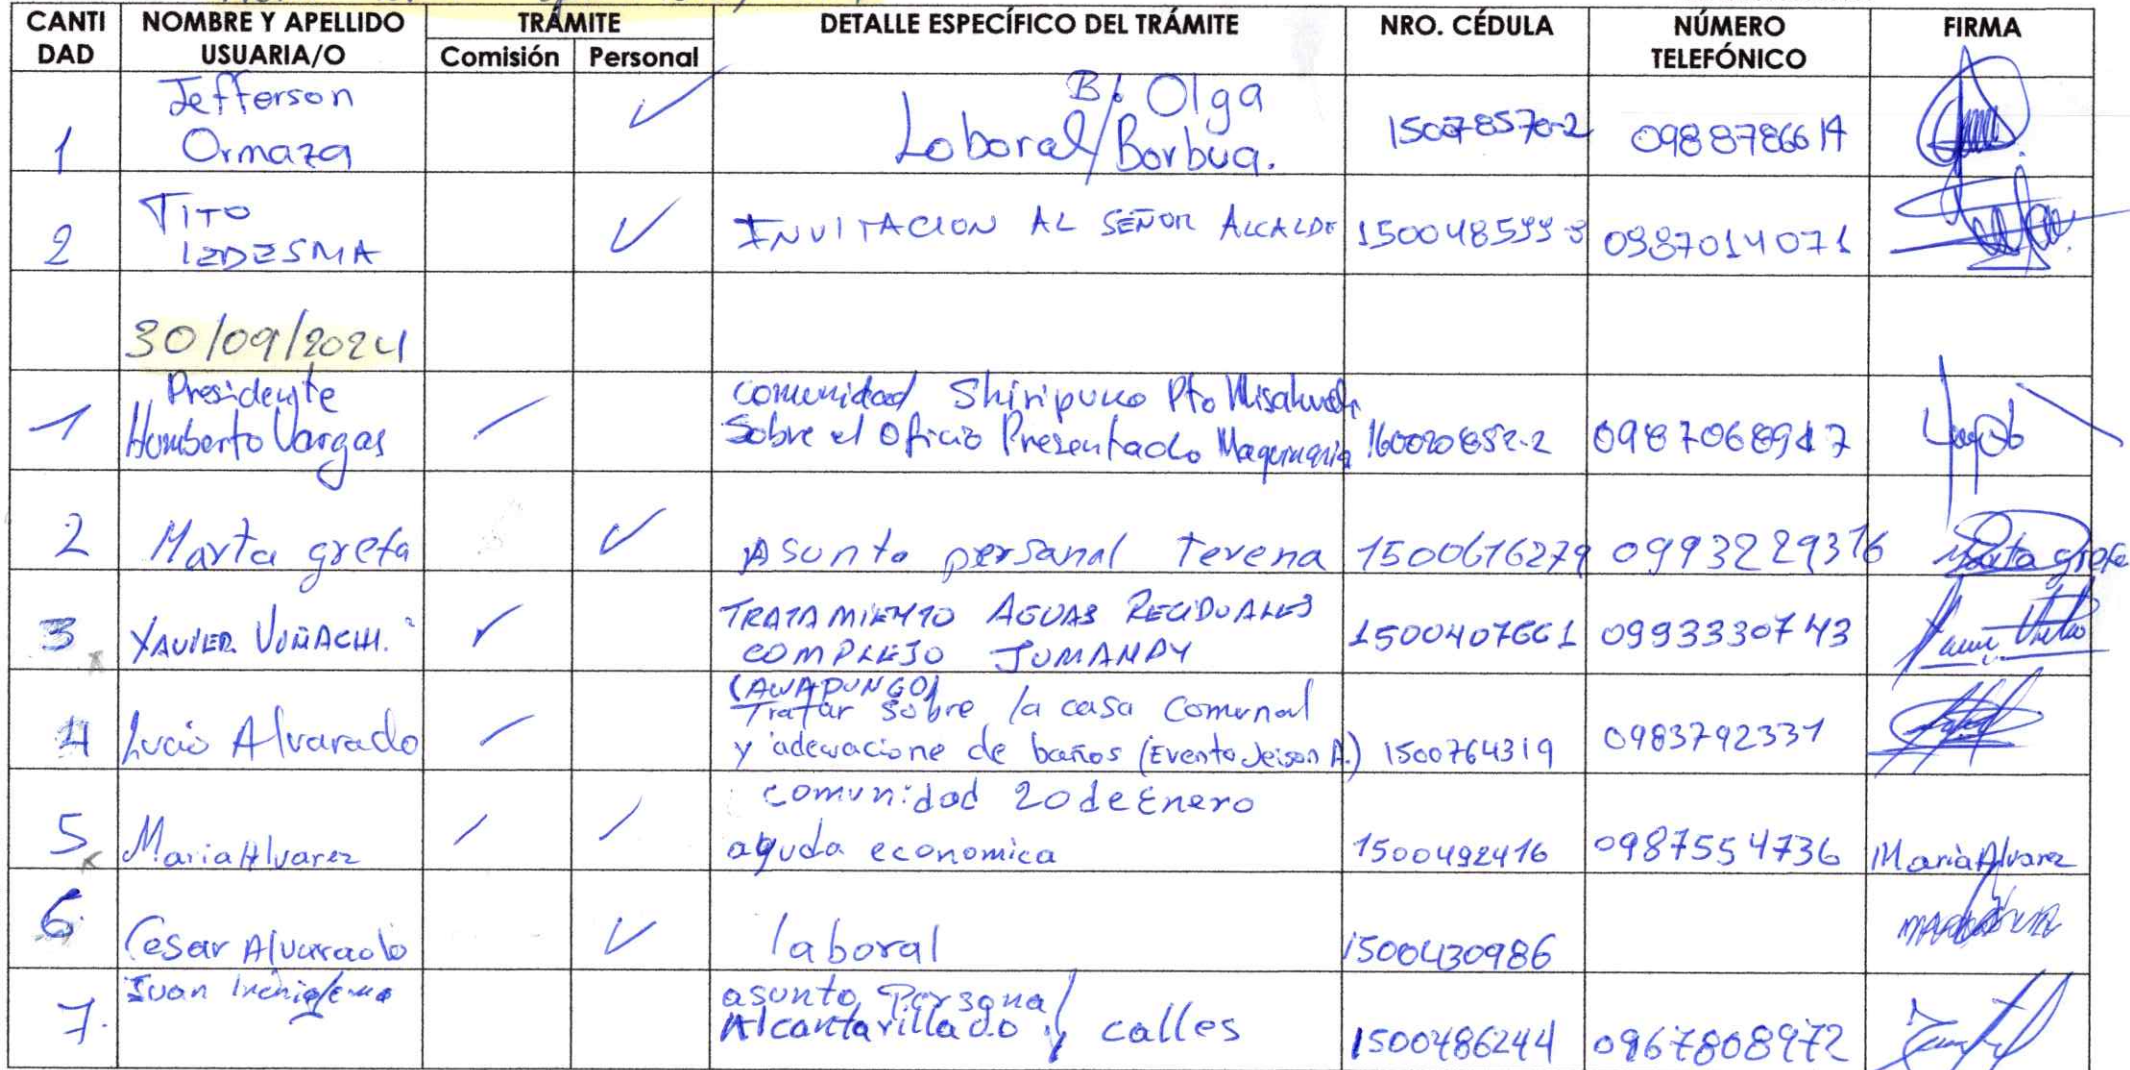 CANTI DAD NOMBRE Y APELLIDO USUARIA/O TRÁMITE Comisión Personal DETALLE ESPECÍFICO DEL TRÁMITE NRO. CÉDULA NÚMERO TELEFÓNICO FIRMA
1 Jefferson Ormaza ✓ Laboral / B/. Olga Borbua. 150078570-2
2 TITO LEDESMA ✓ INVITACION AL SEÑOR ALCALDE 0987014071
30/09/2024
1 Presidente Humberto Vargas / comunidad Shiripuno Pto Misahualli
Sobre el Oficio Presentado Maquinaria
2 Marta grefa ✓ Asunto personal 1500616279 0993229316 Marta grefa
3 XAVIER ✓ TRATAMIENTO AGUAS RECIDUALES
COMPLEJO JUMANDY 1500407661 0993330743
4 Lucio Alvarado / (AWAPUNGO)
Tratar sobre la casa Comunal
y adecuacione de baños (Evento Jeison A.) 1500764319 0983792331
5 Maria Alvarez / / comunidad 20 de Enero
ayuda economica 1500492416 0987554736 Maria Alvarez
6. Cesar Alvarado ✓ laboral 1500430986
7. Juan asunto Personal
Alcantarillado y calles 1500486244 0967808972